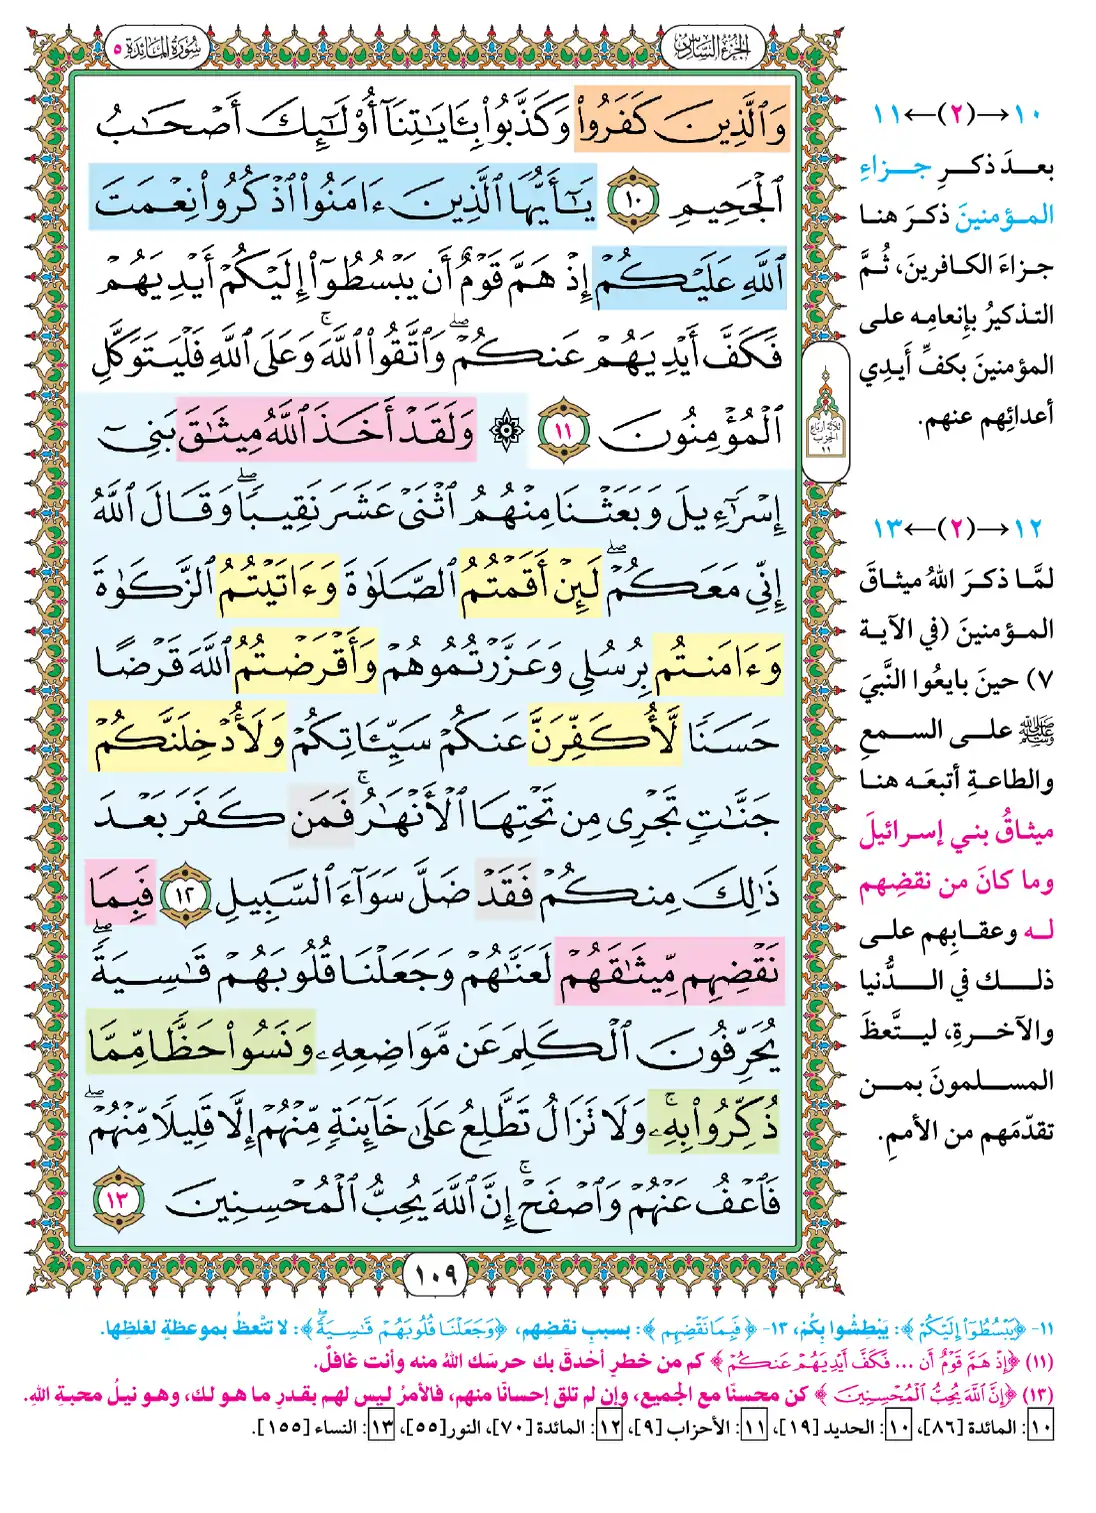 سُورَةُ المَائدَة ٥
الجُزءُ السَّادِسُ
وَٱلَّذِينَ كَفَرُوا۟ وَكَذَّبُوا۟ بِـَٔايَـٰتِنَآ أُو۟لَـٰٓئِكَ أَصْحَـٰبُ
ٱلْجَحِيمِ ١٠ يَـٰٓأَيُّهَا ٱلَّذِينَ ءَامَنُوا۟ ٱذْكُرُوا۟ نِعْمَتَ
ٱللَّهِ عَلَيْكُمْ إِذْ هَمَّ قَوْمٌ أَن يَبْسُطُوٓا۟ إِلَيْكُمْ أَيْدِيَهُمْ
فَكَفَّ أَيْدِيَهُمْ عَنكُمْ ۖ وَٱتَّقُوا۟ ٱللَّهَ ۚ وَعَلَى ٱللَّهِ فَلْيَتَوَكَّلِ
ٱلْمُؤْمِنُونَ ١١ ۞ وَلَقَدْ أَخَذَ ٱللَّهُ مِيثَـٰقَ بَنِىٓ
إِسْرَٰٓءِيلَ وَبَعَثْنَا مِنْهُمُ ٱثْنَىْ عَشَرَ نَقِيبًا ۖ وَقَالَ ٱللَّهُ
إِنِّى مَعَكُمْ ۖ لَئِنْ أَقَمْتُمُ ٱلصَّلَوٰةَ وَءَاتَيْتُمُ ٱلزَّكَوٰةَ
وَءَامَنتُم بِرُسُلِى وَعَزَّرْتُمُوهُمْ وَأَقْرَضْتُمُ ٱللَّهَ قَرْضًا
حَسَنًا لَّأُكَفِّرَنَّ عَنكُمْ سَيِّـَٔاتِكُمْ وَلَأُدْخِلَنَّكُمْ
جَنَّـٰتٍ تَجْرِى مِن تَحْتِهَا ٱلْأَنْهَـٰرُ ۚ فَمَن كَفَرَ بَعْدَ
ذَٰلِكَ مِنكُمْ فَقَدْ ضَلَّ سَوَآءَ ٱلسَّبِيلِ ١٢ فَبِمَا
نَقْضِهِم مِّيثَـٰقَهُمْ لَعَنَّـٰهُمْ وَجَعَلْنَا قُلُوبَهُمْ قَـٰسِيَةً ۖ
يُحَرِّفُونَ ٱلْكَلِمَ عَن مَّوَاضِعِهِۦ ۙ وَنَسُوا۟ حَظًّا مِّمَّا
ذُكِّرُوا۟ بِهِۦ ۚ وَلَا تَزَالُ تَطَّلِعُ عَلَىٰ خَآئِنَةٍ مِّنْهُمْ إِلَّا قَلِيلًا مِّنْهُمْ ۖ
فَٱعْفُ عَنْهُمْ وَٱصْفَحْ ۚ إِنَّ ٱللَّهَ يُحِبُّ ٱلْمُحْسِنِينَ ١٣
١٠→(٢)←١١
بعدَ ذكرِ جزاءِ
المؤمنينَ ذكرَ هنا
جزاءَ الكافرينَ، ثُمَّ
التذكيرُ بإنعامِه على
المؤمنينَ بكفِّ أَيدِي
أعدائِهم عنهم.
ثلاثة أرباع
الحزب
١١
١٢→(٢)←١٣
لمَّا ذكرَ اللهُ ميثاقَ
المؤمنينَ (في الآية
٧) حينَ بايعُوا النَّبيَ
ﷺ على السمعِ
والطاعةِ أتبعَه هنا
ميثاقُ بني إسرائيلَ
وما كانَ من نقضِهم
له وعقابِهم على
ذلك في الدُّنيا
والآخرةِ، ليتَّعظَ
المسلمونَ بمن
تقدّمَهم من الأممِ.
١٠٩
١١- ﴿يَبْسُطُوٓا۟ إِلَيْكُمْ﴾: يَبْطِشُوا بِكُمْ، ١٣- ﴿فَبِمَا نَقْضِهِم﴾: بسببِ نقضِهم، ﴿وَجَعَلْنَا قُلُوبَهُمْ قَـٰسِيَةً ۖ﴾: لا تتَّعظُ بموعظةٍ لغلظِها.
(١١) ﴿إِذْ هَمَّ قَوْمٌ أَن ... فَكَفَّ أَيْدِيَهُمْ عَنكُمْ﴾ كم من خطرٍ أحْدقَ بك حرسَك اللهُ منه وأنت غافلٌ.
(١٣) ﴿إِنَّ ٱللَّهَ يُحِبُّ ٱلْمُحْسِنِينَ﴾ كن محسنًا مع الجميعِ، وإن لم تلق إحسانًا منهم، فالأمرُ ليس لهم بقدرِ ما هو لك، وهو نيلُ محبةِ اللهِ.
١٠: المائدة [٨٦]، ١٠: الحديد [١٩]، ١١: الأحزاب [٩]، ١٢: المائدة [٧٠]، النور[٥٥]، ١٣: النساء [١٥٥].